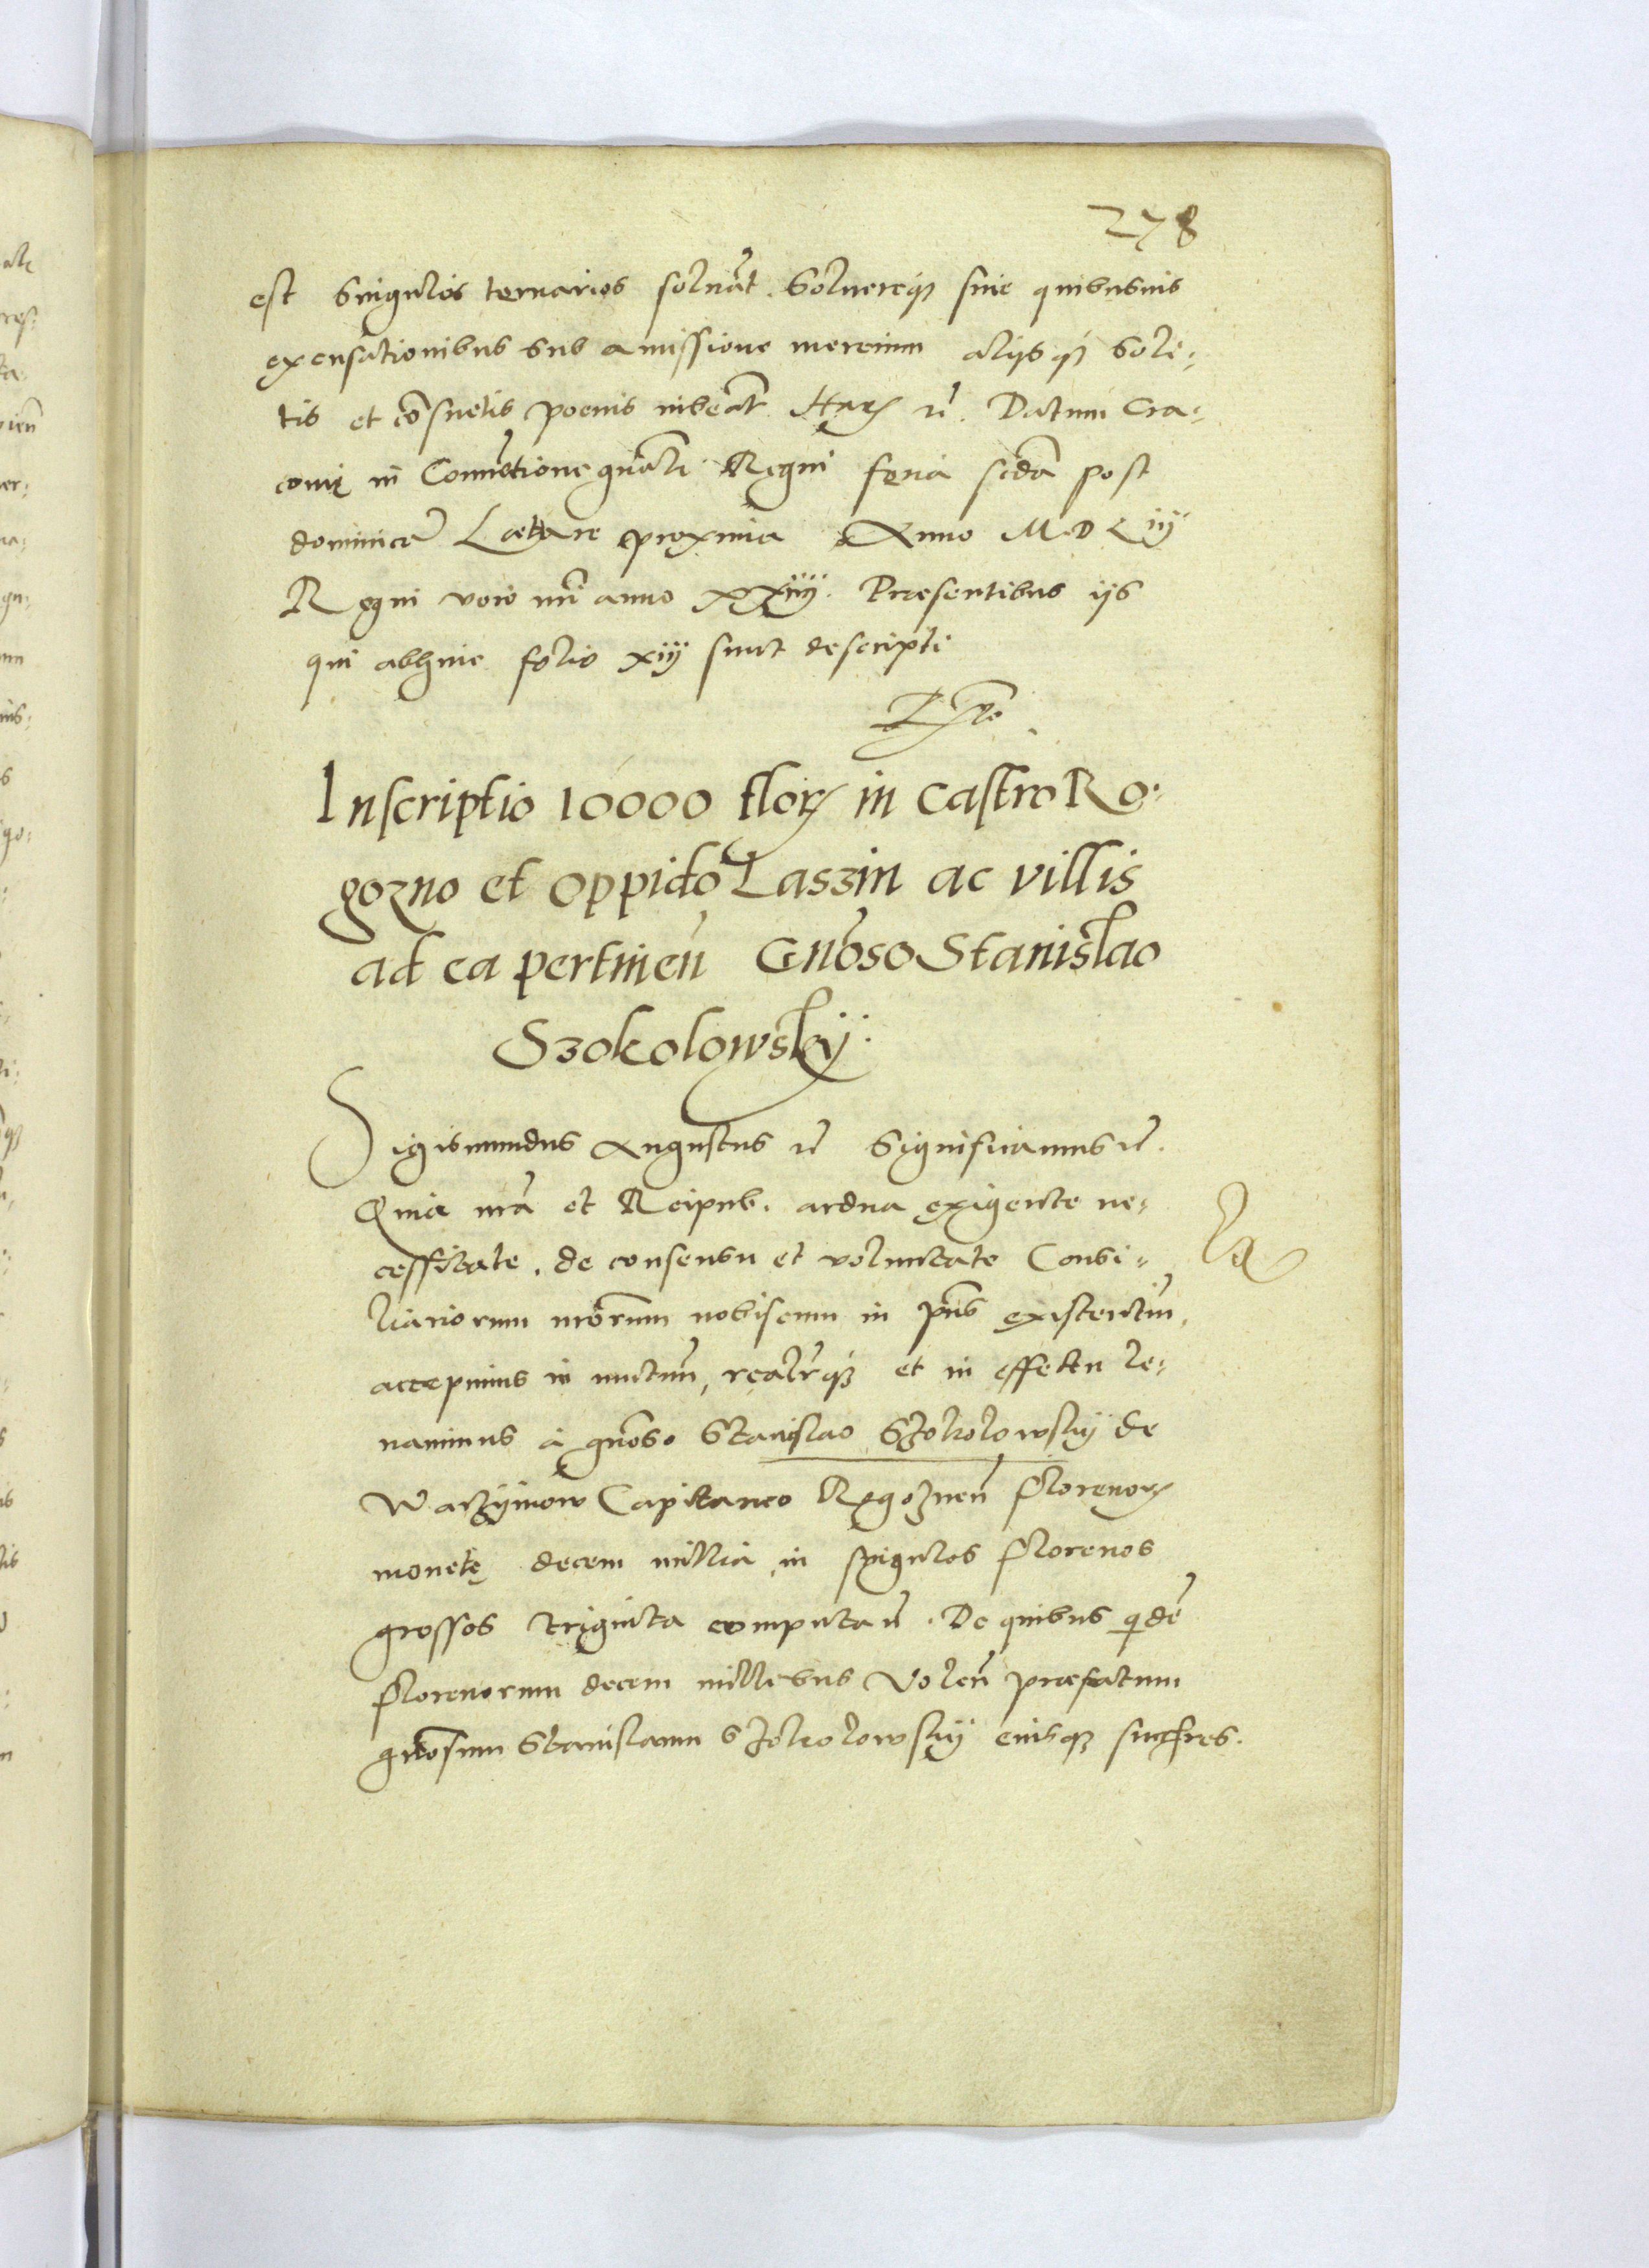 278
est singulos ternarios soluāt. Soluereq́ȝ sine quibusuis
excusationibus sub amissione mercium alijsq́ȝ sole-
tis et cōsuetis poenis iubeāt. Harꝝ rē. Datum Cra-
couię in Conuētione gn̄ali Regni feria sc̄da post
dominicā Lætare proxima Anno M.D.Liij
Regni vero nr̄i anno XXiiij. Præsentibus ijs
qui abhinc folio xiij sunt descripti
Inscriptio 10000 florꝝ in Castro Ro-
gozno et oppido Laszin ac villis
ad ea pertinen̄ Gn̄oso Stanislao
Szokolowskÿ.
Sigismundus Augustus rē Significamus rē.
Quia nr̄a et Reipub. ardua exigente ne-
cessitate. de consensu et voluntate Consi-
liariorum nr̄orum nobiscum in pn̄s existentiū,
accepimus in mutuū, realr̄q́ȝ et in effectu le-
uauimus à gn̄oso Stanislao Szokolowskÿ de
Warzÿmow Capitaneo Rogoznen̄ florenorꝝ
monetę decem millia, in singulos florenos
grossos triginta computan̄. De quibus quidē
florenorum decem millibus Volen̄ præfatum
gn̄osum Stanislaum Szokolowskÿ eiusqȝ succſres.